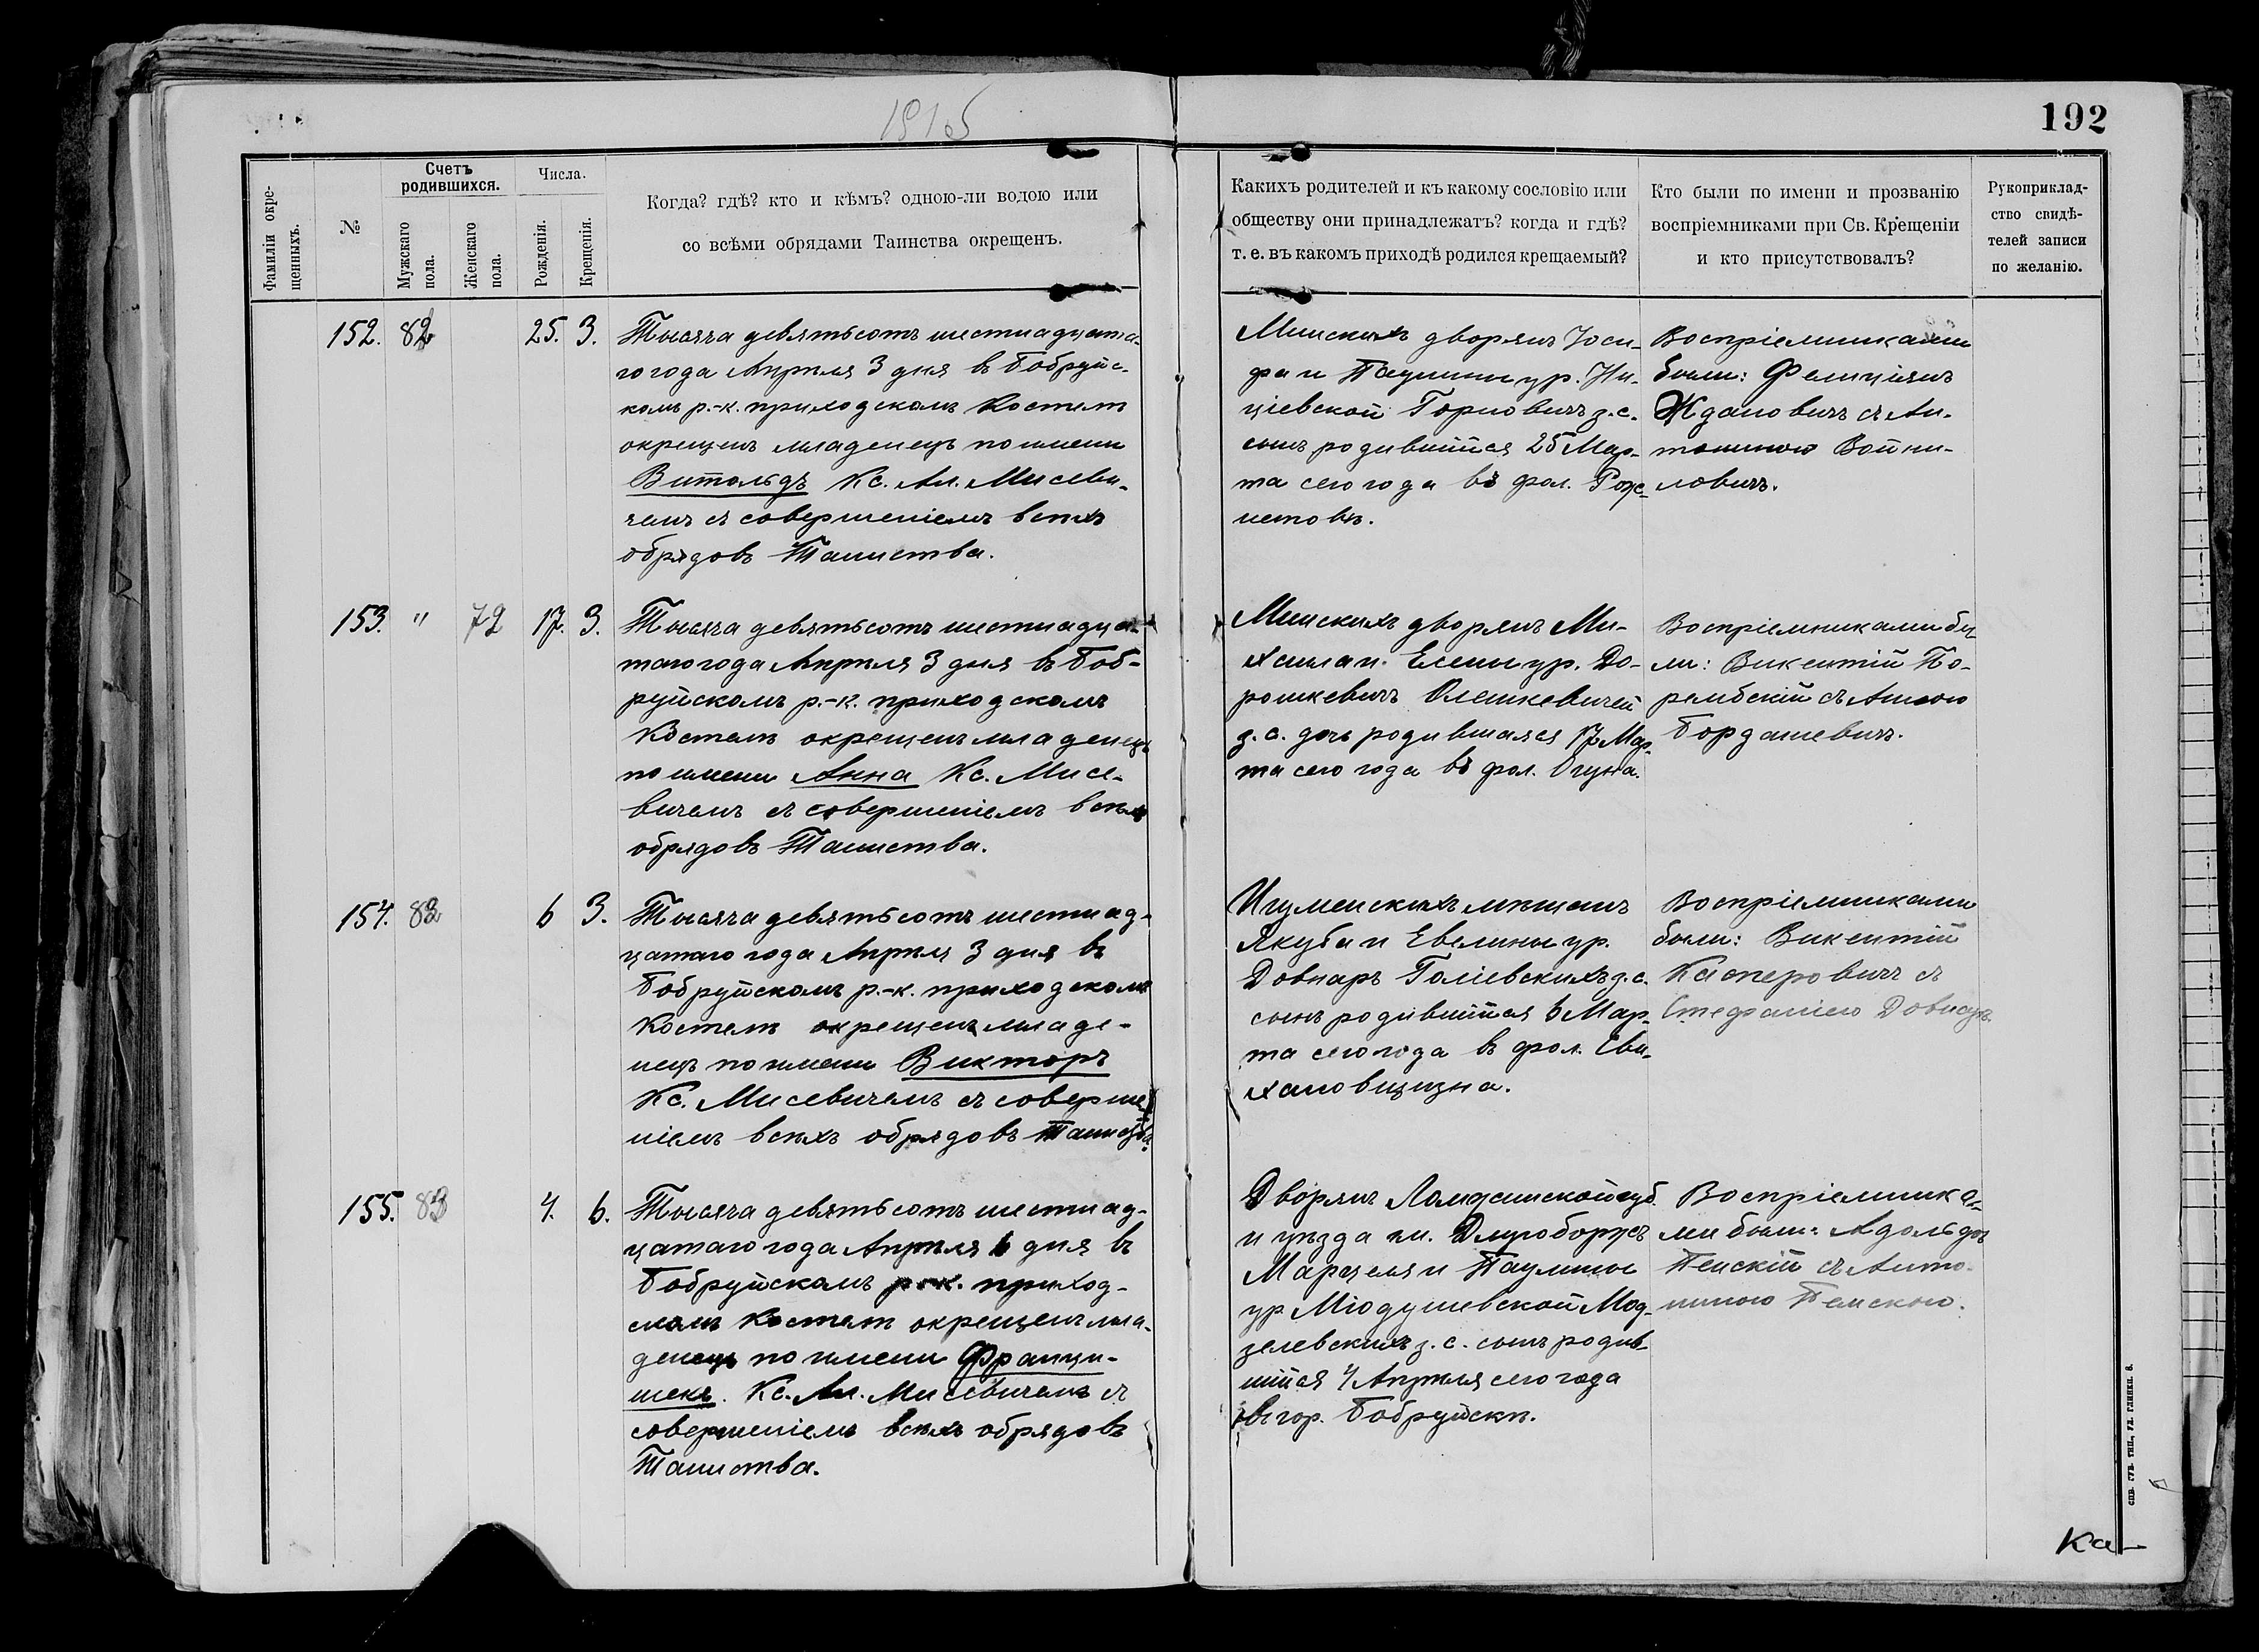 1915
192
Фамиліи окре-
щенныхъ.
№
Счетъ
родившихся.
Мужскаго
пола.
Женскаго
пола.
Числа.
Рожденія.
Крещенія.
Когда? гдѣ? кто и кѣмъ? одною-ли водою или
со всѣми обрядами Таинства окрещенъ.
Какихъ родителей и къ какому сословію или
обществу они принадлежатъ? когда и гдѣ?
т. е. въ какомъ приходѣ родился крещаемый?
Кто были по имени и прозванію
воспріемниками при Св. Крещеніи
и кто присутствовалъ?
Рукоприклад-
ство свидѣ-
телей записи
по желанію.
152. 82 25. 3.
Тысяча девятьсотъ шестнадцата-
го года Апрѣля 3 дня въ Бобруйс-
комъ р.-к. приходскомъ Костелѣ
окрещенъ младенецъ по имени
Витольдъ Кс. Ал. Мисеви-
чемъ съ совершеніемъ всѣхъ
обрядовъ Таинства.
Минскихъ дворянъ Іоси-
фа и Паулины ур. Ни-
ціевской Горновичъ з. с.
сынъ родившійся 25 Мар-
та сего года въ фол.
Воспріемниками
были: Фелиціянъ
Ждановичъ съ Ан-
тониною Войни-
ловичъ.
153. " 72 17. 3.
Тысяча девятьсотъ шестнадца-
таго года Апрѣля 3 дня въ Боб-
руйскомъ р.-к. приходскомъ
Костелѣ окрещенъ младенецъ
по имени Анна Кс. Мисе-
вичемъ съ совершеніемъ всѣхъ
обрядовъ Таинства.
Минскихъ дворянъ Ми-
хаила и Елены ур. До-
рошкевичъ Олешкевичей
з. с. дочь родившаяся 17 Мар-
та сего года въ фол. Огуна.
Воспріемниками бы-
ли: Викентій По-
рембскій съ Анною
Бордашевичъ.
154. 83 6 3.
Тысяча девятьсотъ шестнад-
цатаго года Апрѣля 3 дня въ
Бобруйскомъ р.-к. приходскомъ
Костелѣ окрещенъ младе-
нецъ по имени Викторъ
Кс. Мисевичемъ съ соверше-
ніемъ всѣхъ обрядовъ Таинства.
Игуменскихъ мѣщанъ
Якуба и Евелины ур.
Довнаръ Голіевскихъ з. с.
сынъ родившійся 6 Мар-
та сего года въ фол. Еви-
хановщизна.
Воспріемниками
были: Викентій
Касперовичъ съ
Стефаніею Довнаръ.
155. 83 4. 6.
Тысяча девятьсотъ шестнад-
цатаго года Апрѣля 6 дня въ
Бобруйскомъ р.-к. приход-
скомъ Костелѣ окрещенъ мла-
денецъ по имени Франци-
шекъ. Кс. Ал. Мисевичемъ съ
совершеніемъ всѣхъ обрядовъ
Таинства.
Дворянъ Ломжинской губ.
и уѣзда гм. Длугоборжъ
Марцеля и Паулины
ур Міодушевской Мод-
зелевскихъ з. с. сынъ родив-
шійся 4 Апрѣля сего года
въ гор. Бобруйскѣ.
Воспріемника-
ми были: Адольфъ
Пенскій съ Анто-
ниною Пенскою.
Ка-